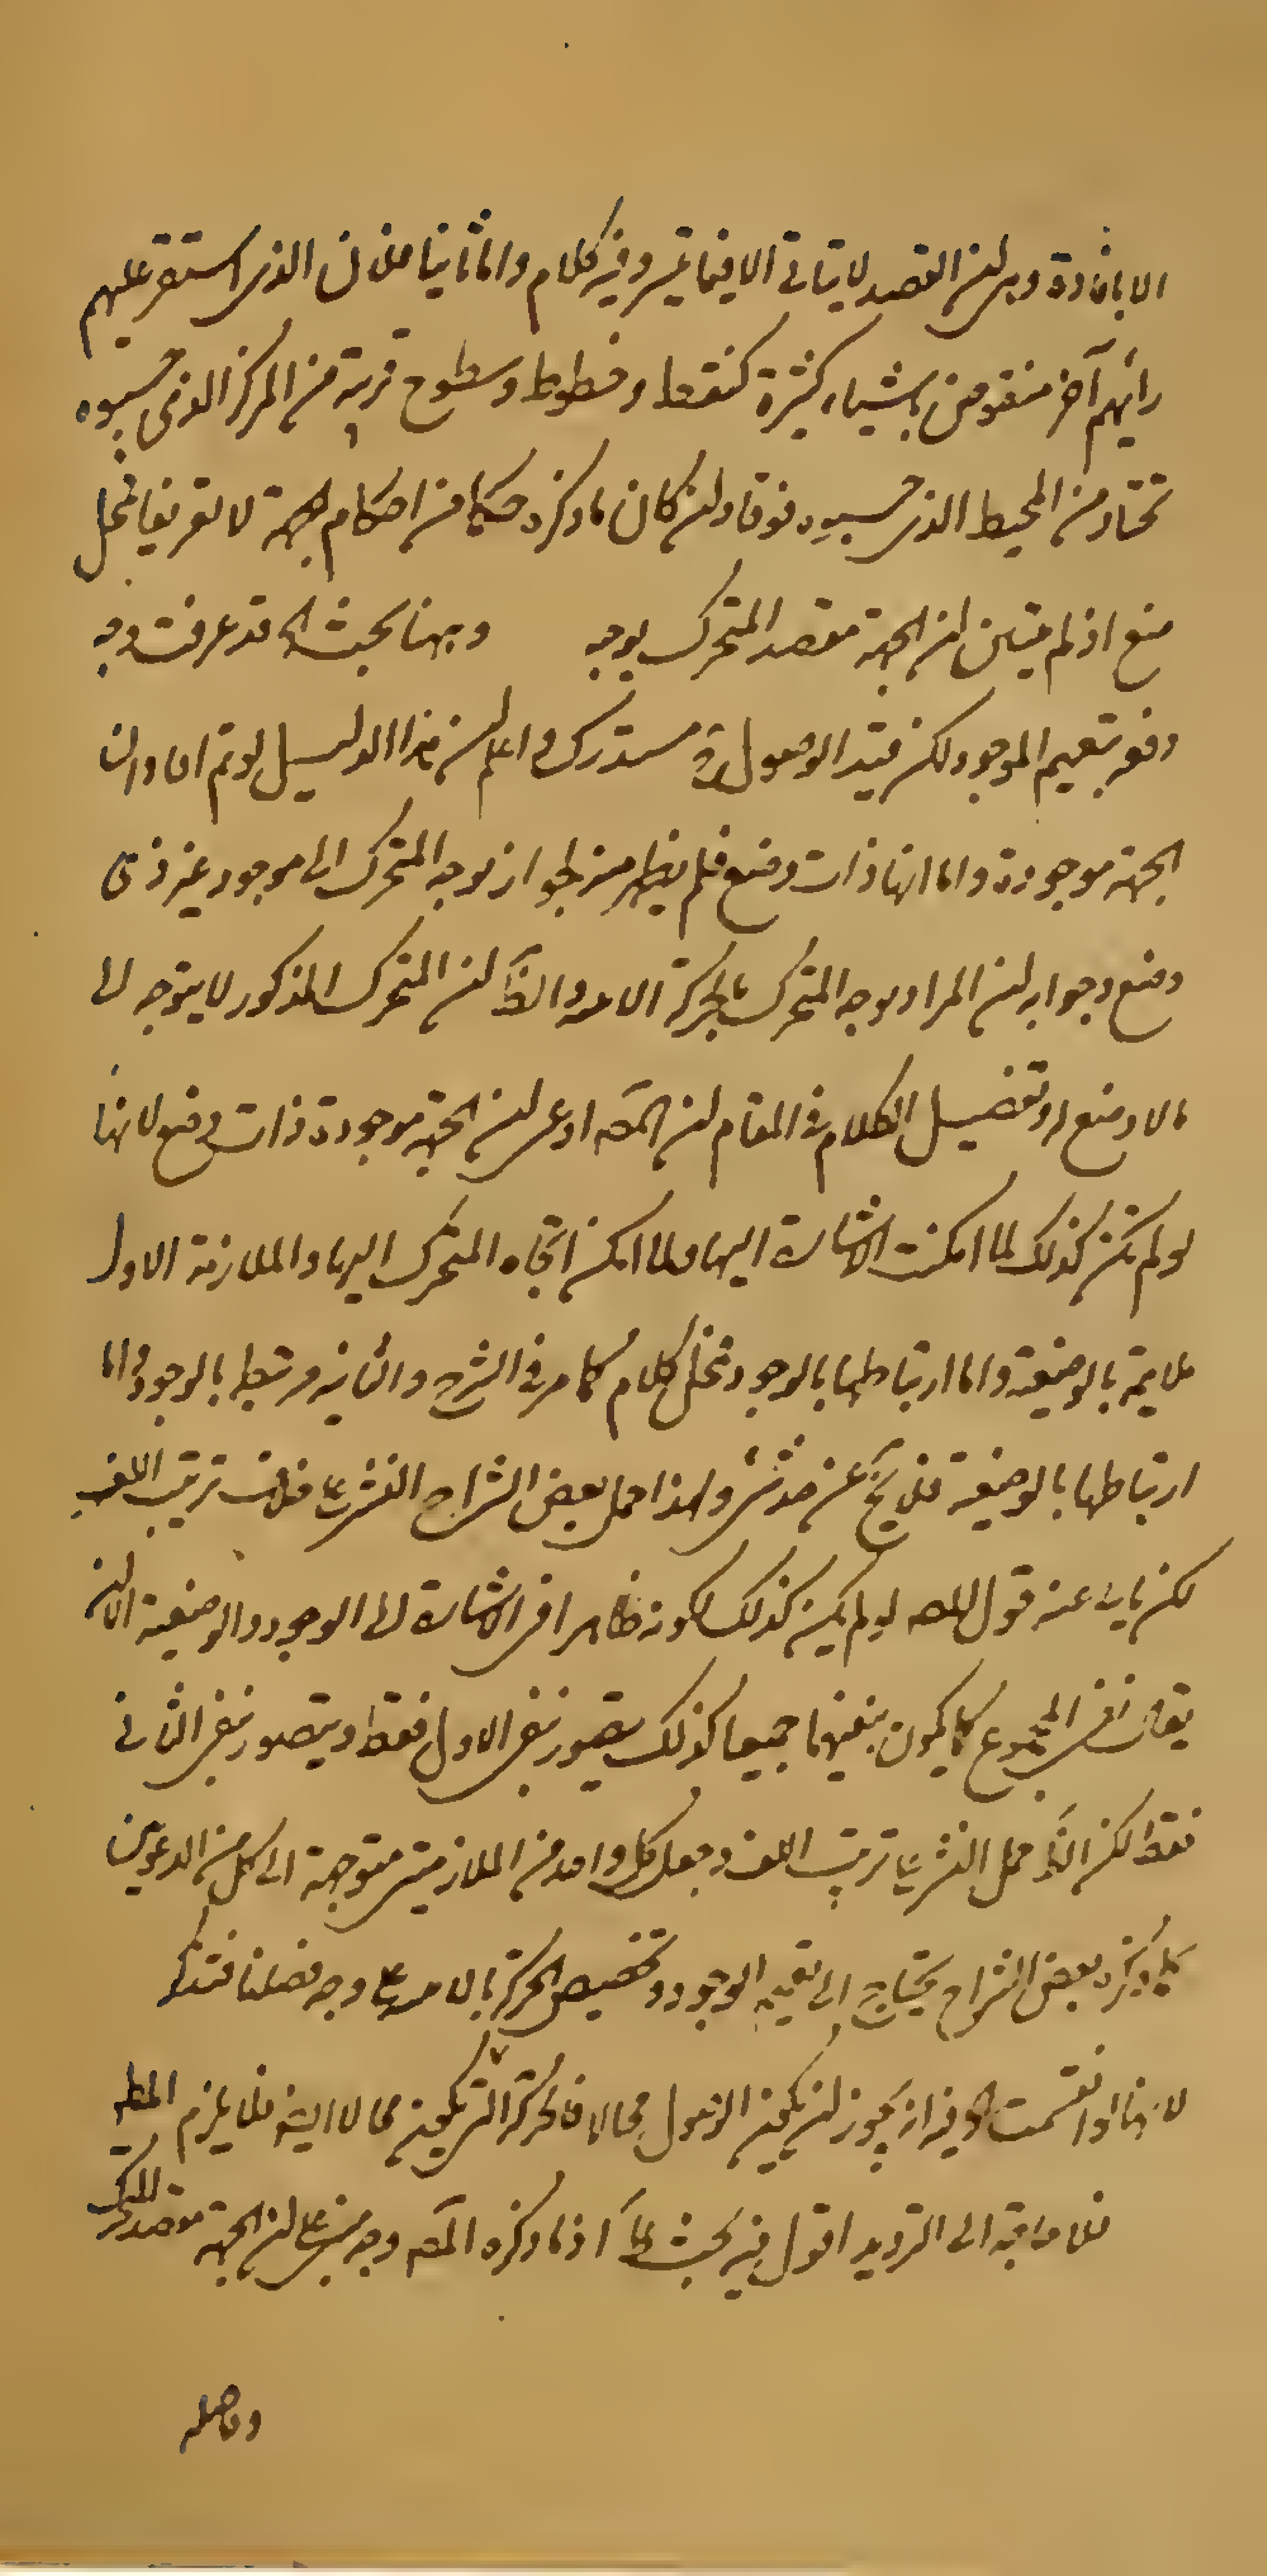 الا بافادة وبر ان القصد لا يتاتى الا فيما تميز وفيه كلام واما ثانيا فلان الذى استقر عليه
رأيهم آخر منقوض باشياء كثيرة كنقط وخطوط وسطوح قريبة من المركز الذى حسبوه
تحتا ومن المحيط الذى حسبوه فوقا وان كان ما ذكره حكما من احكام الجهة لا تعريفا فمحل
منع اذ لم يتبين ان الجهة مقصد المتحرك بوجه وههنا بحث اه قد عرفت وجه
دفعه بتعميم الموجود لكن قيد الوصول مستدرك واعلم ان هذا الدليل لو تم افاد ان
الجهة موجودة واما انها ذات وضع فلم يظهر منه لجواز توجه المتحرك الى موجود غير ذى
وضع وجوابه ان المراد توجه المتحرك بالحركة والظ ان المتحرك المذكور لا يتوجه الا
الا وضع له وتفصيل الكلام فى المقام ان المصه ادعى ان الجهة موجودة ذات وضع لانها
لو لم تكن كذلك لما امكنت الاشارة اليها ولما امكن اتجاه المتحرك اليها والملازمة الاولى
ملايمة بالوضعية واما ارتباطها بالوجود فمحل كلام كما مر فى الشرح والثانية مرتبط بالوجود واما
ارتباطها بالوضعية فلا يخ عن خدشة ولهذا حمل بعض الشراح النشر على خلاف ترتيب اللف
لكن يابى عنه قول المصه لو لم يكن كذلك لكونه ظاهرا فى الاشارة الى الوجود والوضعية الا ان
يقال نفى المجموع كما يكون بنفيهما جميعا كذلك يتصور بنفى الاول فقط ويتصور بنفى الثانى
فقط لكن الظ حمل النشر على ترتيب اللف وجعل كل واحد من الملازمتين متوجهة الى كل من الدعويين
كما ذكره بعض الشراح يحتاج الى تقييد الوجود وتخصيص الحركة بالا على وجه فصلنا فتذكر
لانها لو انقسمت اه فيه انه يجوز ان يكون الوصول محالا فالحركة التى يكون محالا اليه فلا يلزم المطه
فلا حاجة الى الترديد اقول فيه بحث لما اذ ما ذكره المصه وجه مبنى على ان الجهة مقصد المتحرك
وحاصله